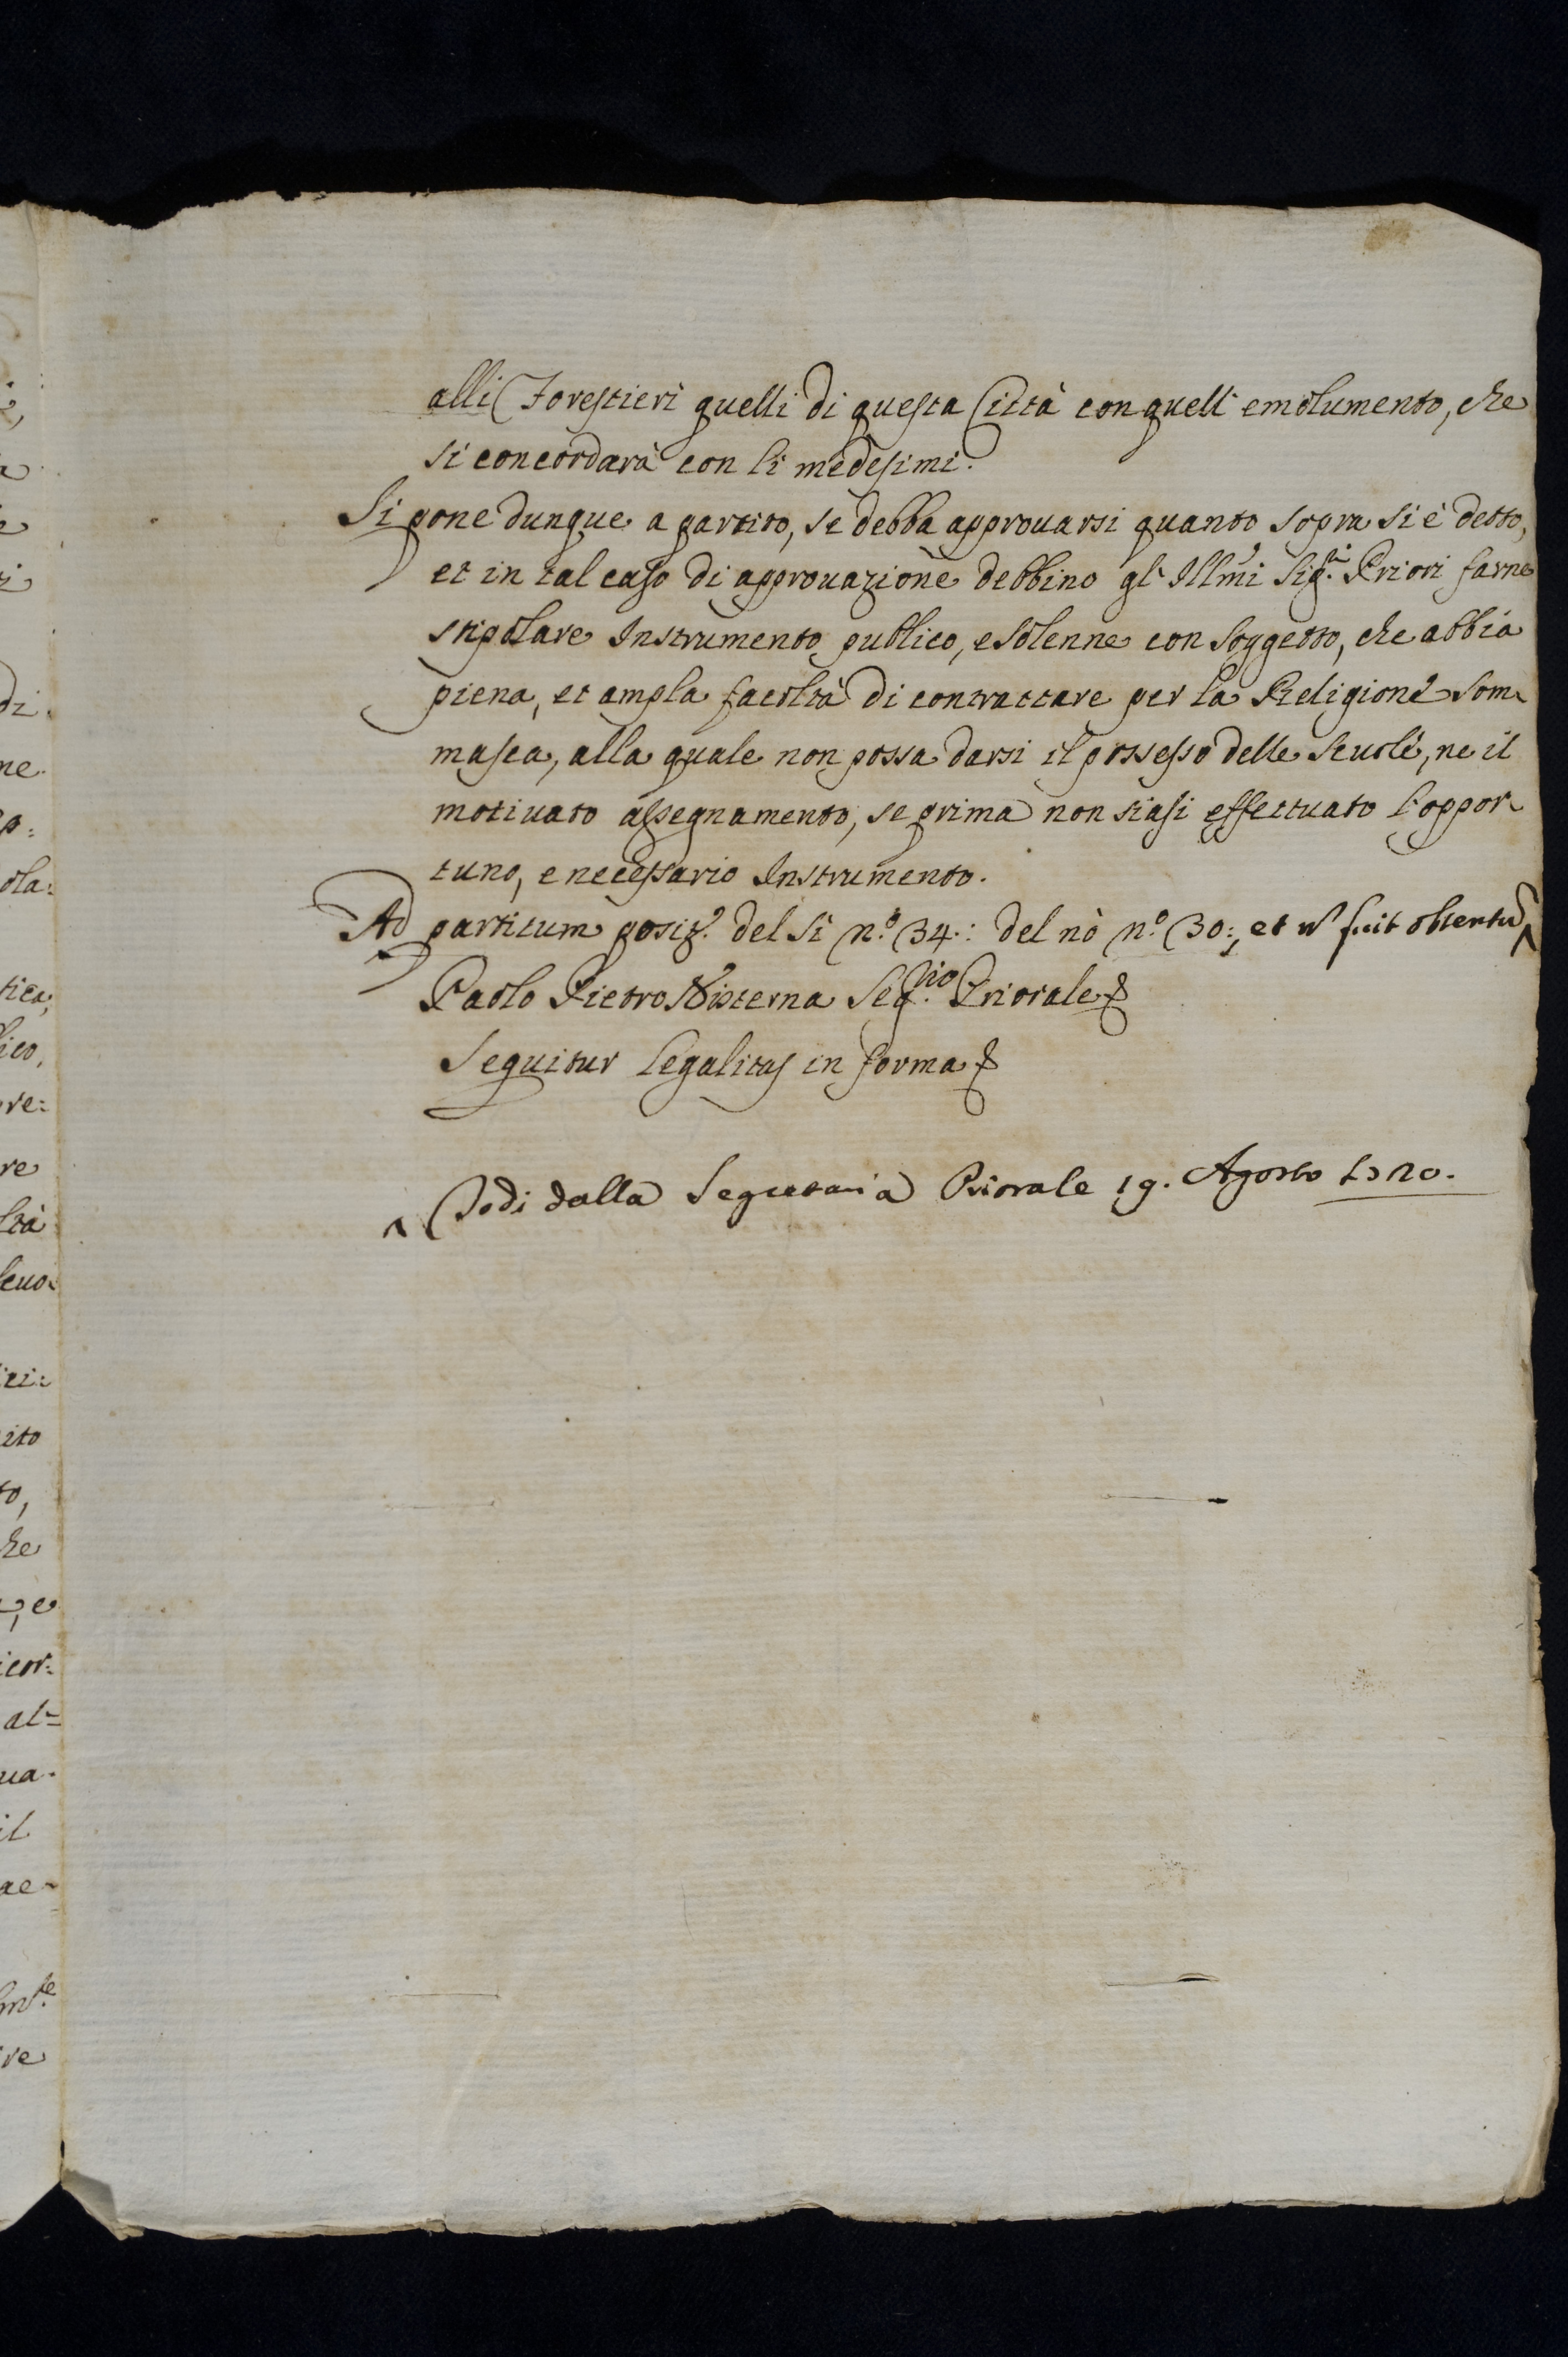 alli Forestieri quelli di questa Città con quell' emolumento, che
si concordarà con li medesimi.
Si pone dunque a partito, se debba approuarsi quanto sopra si è detto,
et in tal caso di approuazione debbino gl' Illmi Sig.ri Priori farne
stipolare Instrumento publico, e solenne con soggetto, che abbia
piena, et ampla facoltà di contrattare per la Religione Som-
masca, alla quale non possa darsi il possesso delle Scuole, ne il
motiuato assegnamento, se prima non siasi effettuato l'oppor-
tuno, e necessario Instrumento.
Ad partitum posit. del sì n.o 34: del nò n.o 30:, et fuit obtentu
Paolo Pietro Seg.rio Priorale
Sequitur legalitas in forma
Todi dalla Segretaria Priorale 19. Agosto